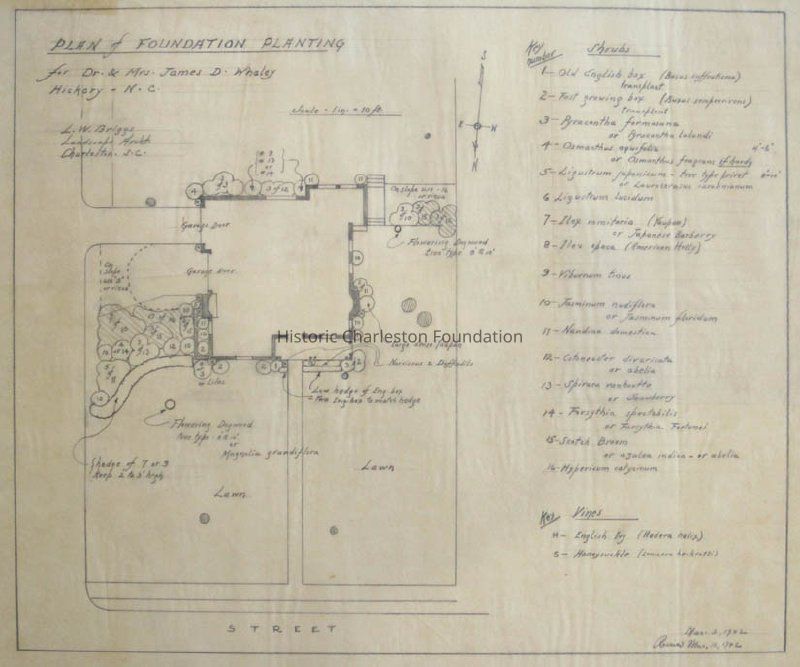 PLAN of FOUNDATION PLANTING
for Dr. & Mrs. James D. Whaley
Hickory - N.C.
Scale - 1 in. = 10 ft.
L. W. Briggs
Landscape Archt
Charleston. S.C.
S
E
W
N
Garage Door
Garage Door
Flowering Dogwood
tree type
Historic Charleston Foundation
Narcissus & Daffodils
Low hedge of Eng. box
Use Eng. box to match hedge
Flowering Dogwood
tree type
or
Magnolia grandiflora
Shedge of 7 or 3
Keep 2' to 3' high
Lawn
Lawn
STREET
Key number
Shrubs
1- Old English box (Buxus suffruticosa)
transplant
2- Fast growing box (Buxus sempervirens)
transplant
3- Pyracantha formosana
or Pyracantha lalandi
4- Osmanthus aquifolia 4'-6'
or Osmanthus fragrans if hardy
5- Ligustrum japonicum - tree type privet
or Laurocerasus carolinianum
6 Ligustrum lucidum
7- Ilex vomitoria (Yaupon)
or Japanese Barberry
8- Ilex opaca (American Holly)
9- Viburnum tinus
10- Jasminum nudiflora
or Jasminum floridum
11- Nandina domestica
12- Cotoneaster divaricata
or abelia
13- Spiraea vanhoutte
or Strawberry
14- Forsythia spectabilis
or Forsythia Fortunei
15- Scotch Broom
or azalea indica - or abelia
16- Hypericum calycinum
Key
Vines
H- English Ivy (Hedera helix)
S- Honeysuckle
Mar. 2, 1942
Revised Mar. 10, 1942